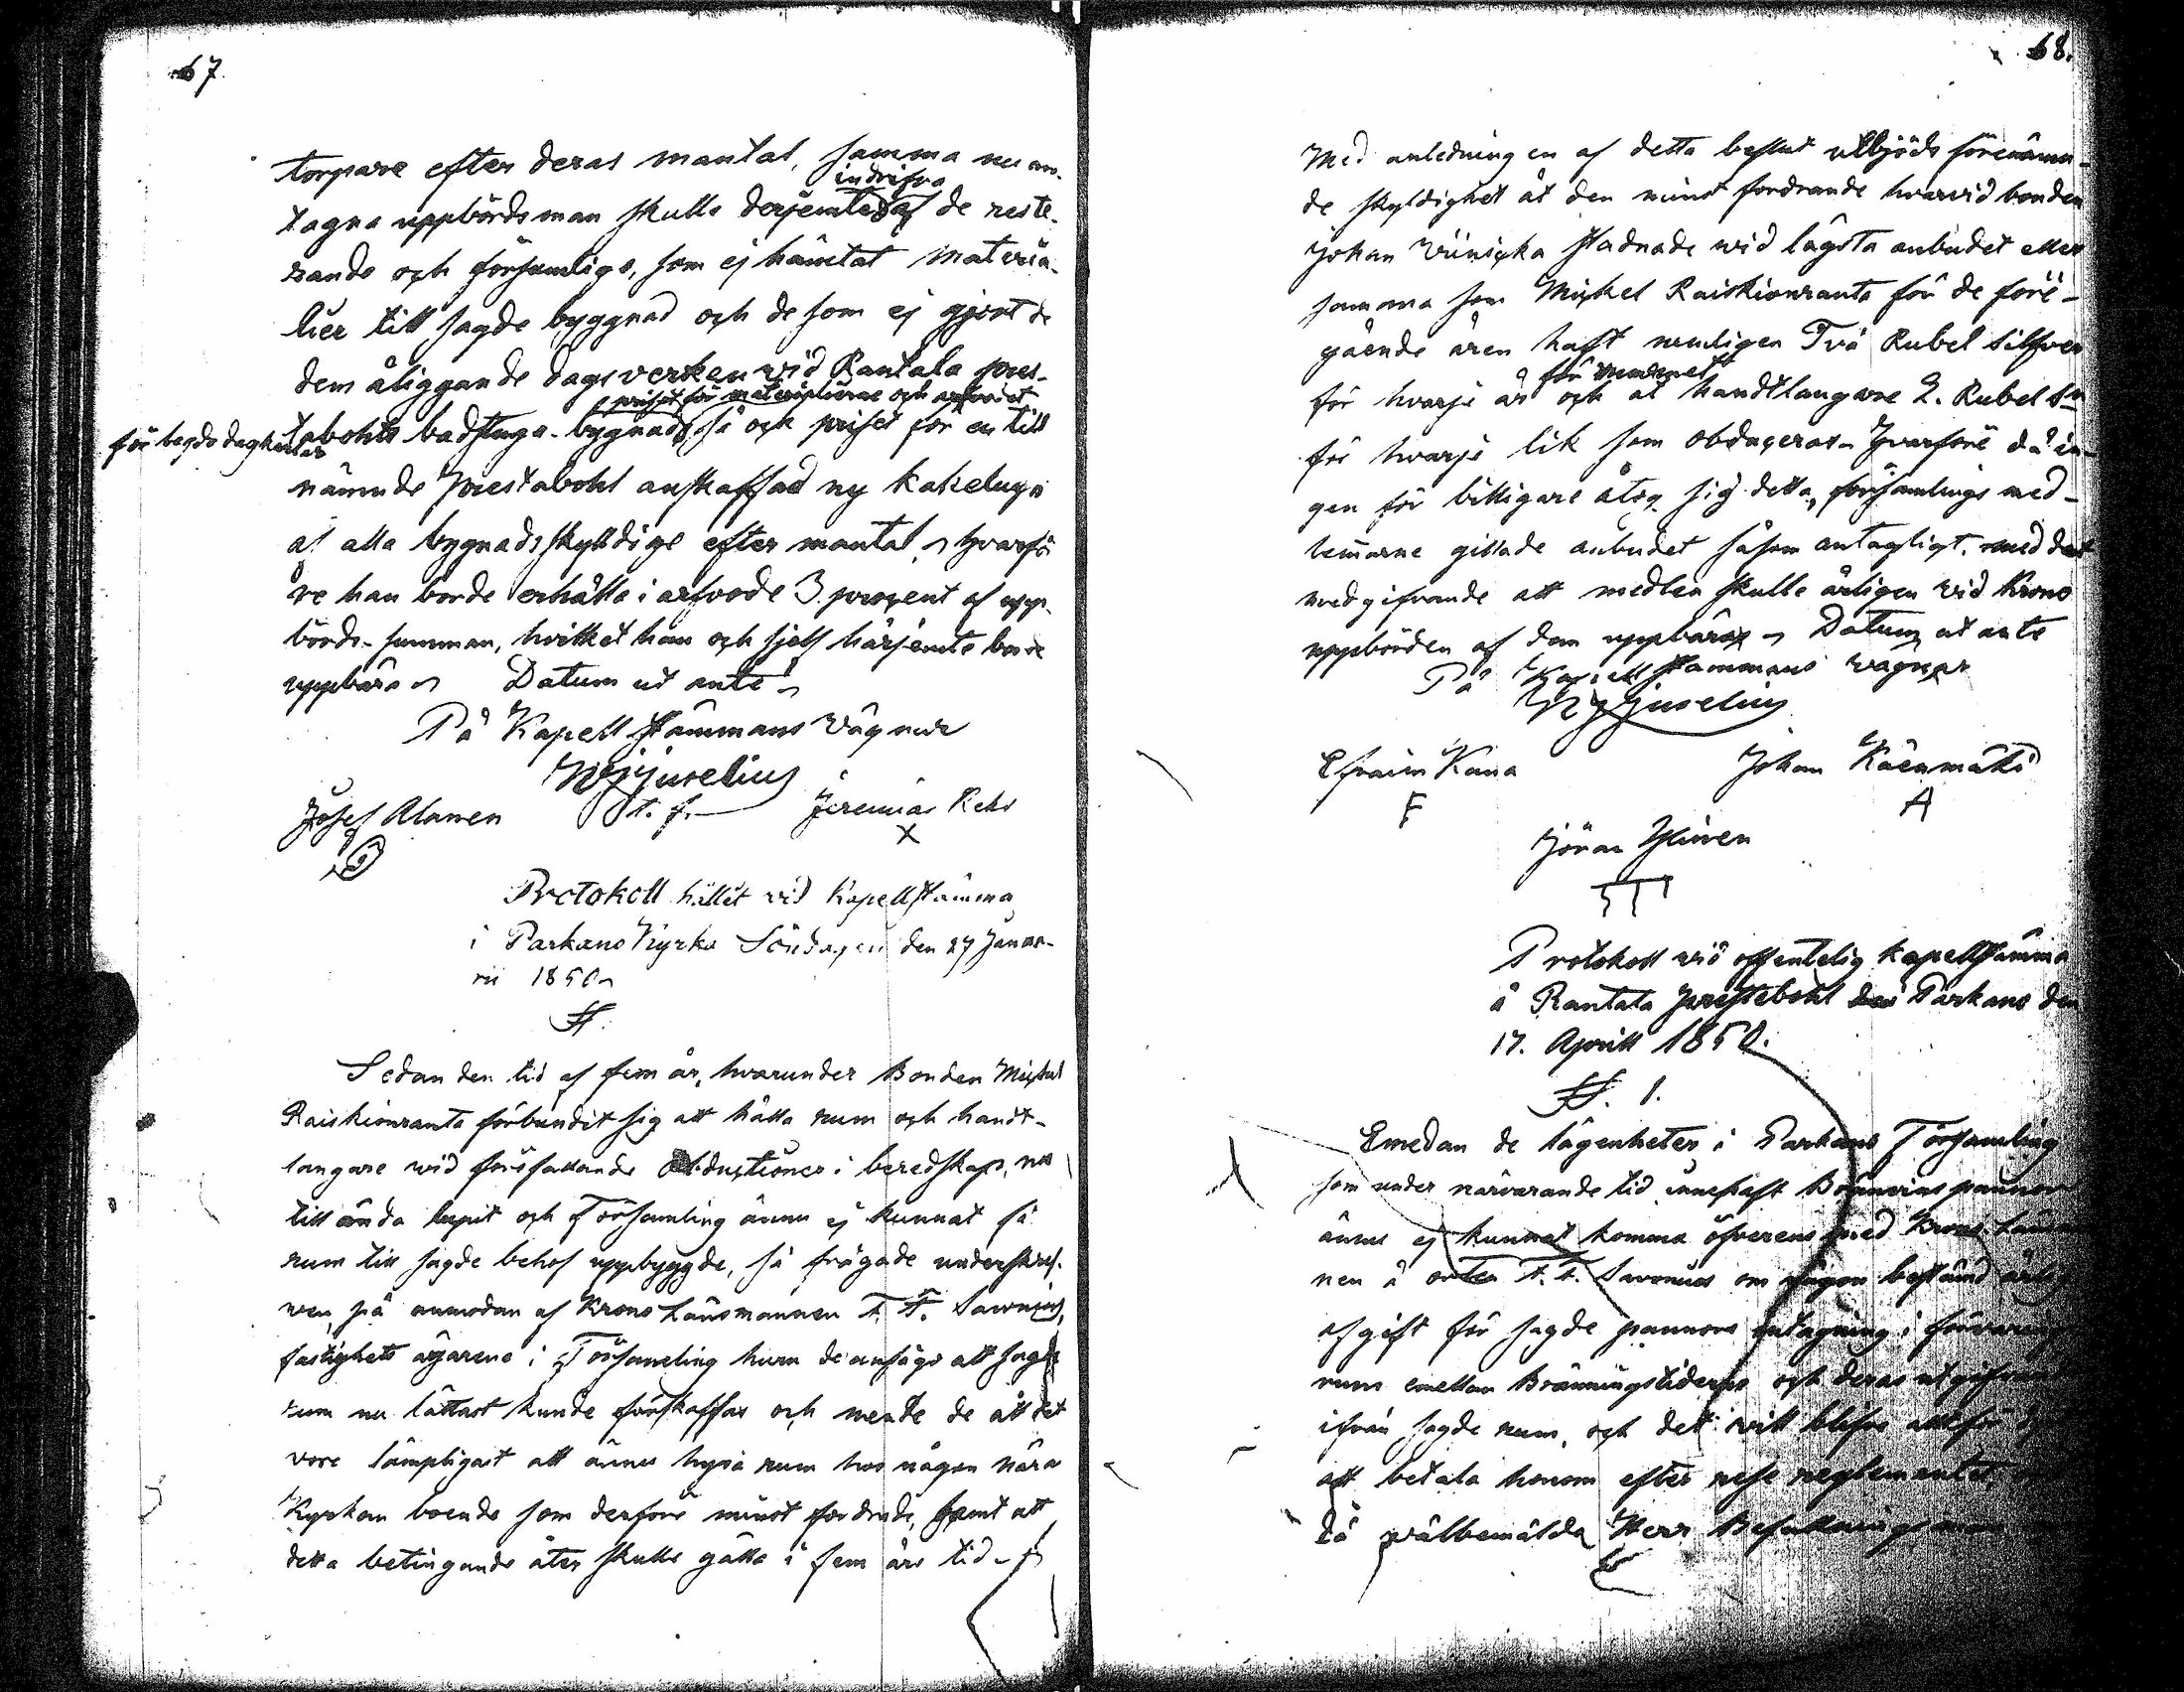 67.
torpare efter deras mantal, samma nu an-
indrifva
tagna uppbördsman skulle derjemte af de reste-
rande och försumlige, som ej hämtat materia-
lier till sagde byggnad och de som ej gjort de
dem åliggande dagsverken wid Rantala pres-
priset för materialierne och arfvodet
för legde dagkarlar
tabohls badstuga-bygnad, så och priset för en till
nämnde prestabohl anskaffad ny kakelugn
af alla bygnadsskyldige efter mantal, hvarfö-
re han borde erhålla i arfvode 3. procent af upp-
börds-summan, hvilket han och sjelf härjemte borde
uppbära. Datum ut ante.
På Kapell stämmans vägnar
t. f.
Josef Alanen
Jeremias Reko
X
Protokoll hållet vid Kapellstämma
i Parkano Kyrka Söndagen den 27 Janua-
rii 1850.
§.
Sedan den tid af fem år, hvarunder Bonden Mickel
Raiskionranta förbundit sig att hålla rum och handt-
langare wid förefallande Obductioner i beredskap, nu
till ända lupit och Församling ännu ej kunnat få
rum till sagde behof uppbyggde, så frågade underskref-
ven, på anmodan af Krono Länsmannen F. F. Savonius,
fastighets ägarene i Församling huru de ansågo att sagde
rum nu lättast kunde förskaffas och mente de att det
vore lämpligast att ännu hyra rum hos någon nära
Kyrkan boende som derföre minst fordrade, samt att
detta betingande åter skulle gälla i fem års tid.
68.
Med anledningen af detta beslut utbjöds förenämn-
de skyldighet åt den minst fordrande hvarvid bonden
Johan Viinicka stadnade wid lägsta anbudet eller
samma som Mickel Raiskionranta för de före-
gående åren haft nemligen Två Rubel Silfver
för rummet
för hvarje år och åt handtlangare 2. Rubel Sr
för hvarje lik som obduceras. Hvarföre då in-
gen för billigare åtog sig detta, församlings med-
lemmarne gillade anbudet såsom antagligt, med det
medgifvande att medlen skulle årligen vid Krono
uppbörden af dem uppbäras. Datum ut ante
På Kapell stammans wägnar
Efraim Kana
F
Johan Käenmäki
A
Jöran Yliven
Protokoll wid offentelig Kapellstämma
å Rantala prestebohl i Parkano den
17. Aprill 1850.
§. 1.
Emedan de lägenheter i Parkano Församling
som under närvarande tid innehaft Bränvins pannor
ännu ej kunnat komma öfverens med Krono Länsman-
nen å orten F. F. Savonius om någon bestämd årlig
afgift för sagde pannors intagning i förvarings
rum emellan Bränningstiderne och deras utgifvande
ifrån sagde rum, och det will blifva allt för
att betala honom efter rese reglementet,
då wälbemälde Herr Befallningsman